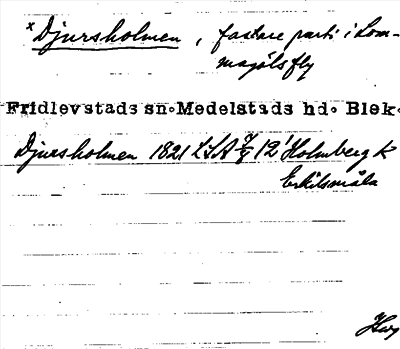 × Djursholmen, fastare parti i Lom-
magölsfly
Fridlevstads sn. Medelstads hd. Blek.
Djursholmen 1821 LSA 12' Holmberg k
Erkilsmåla